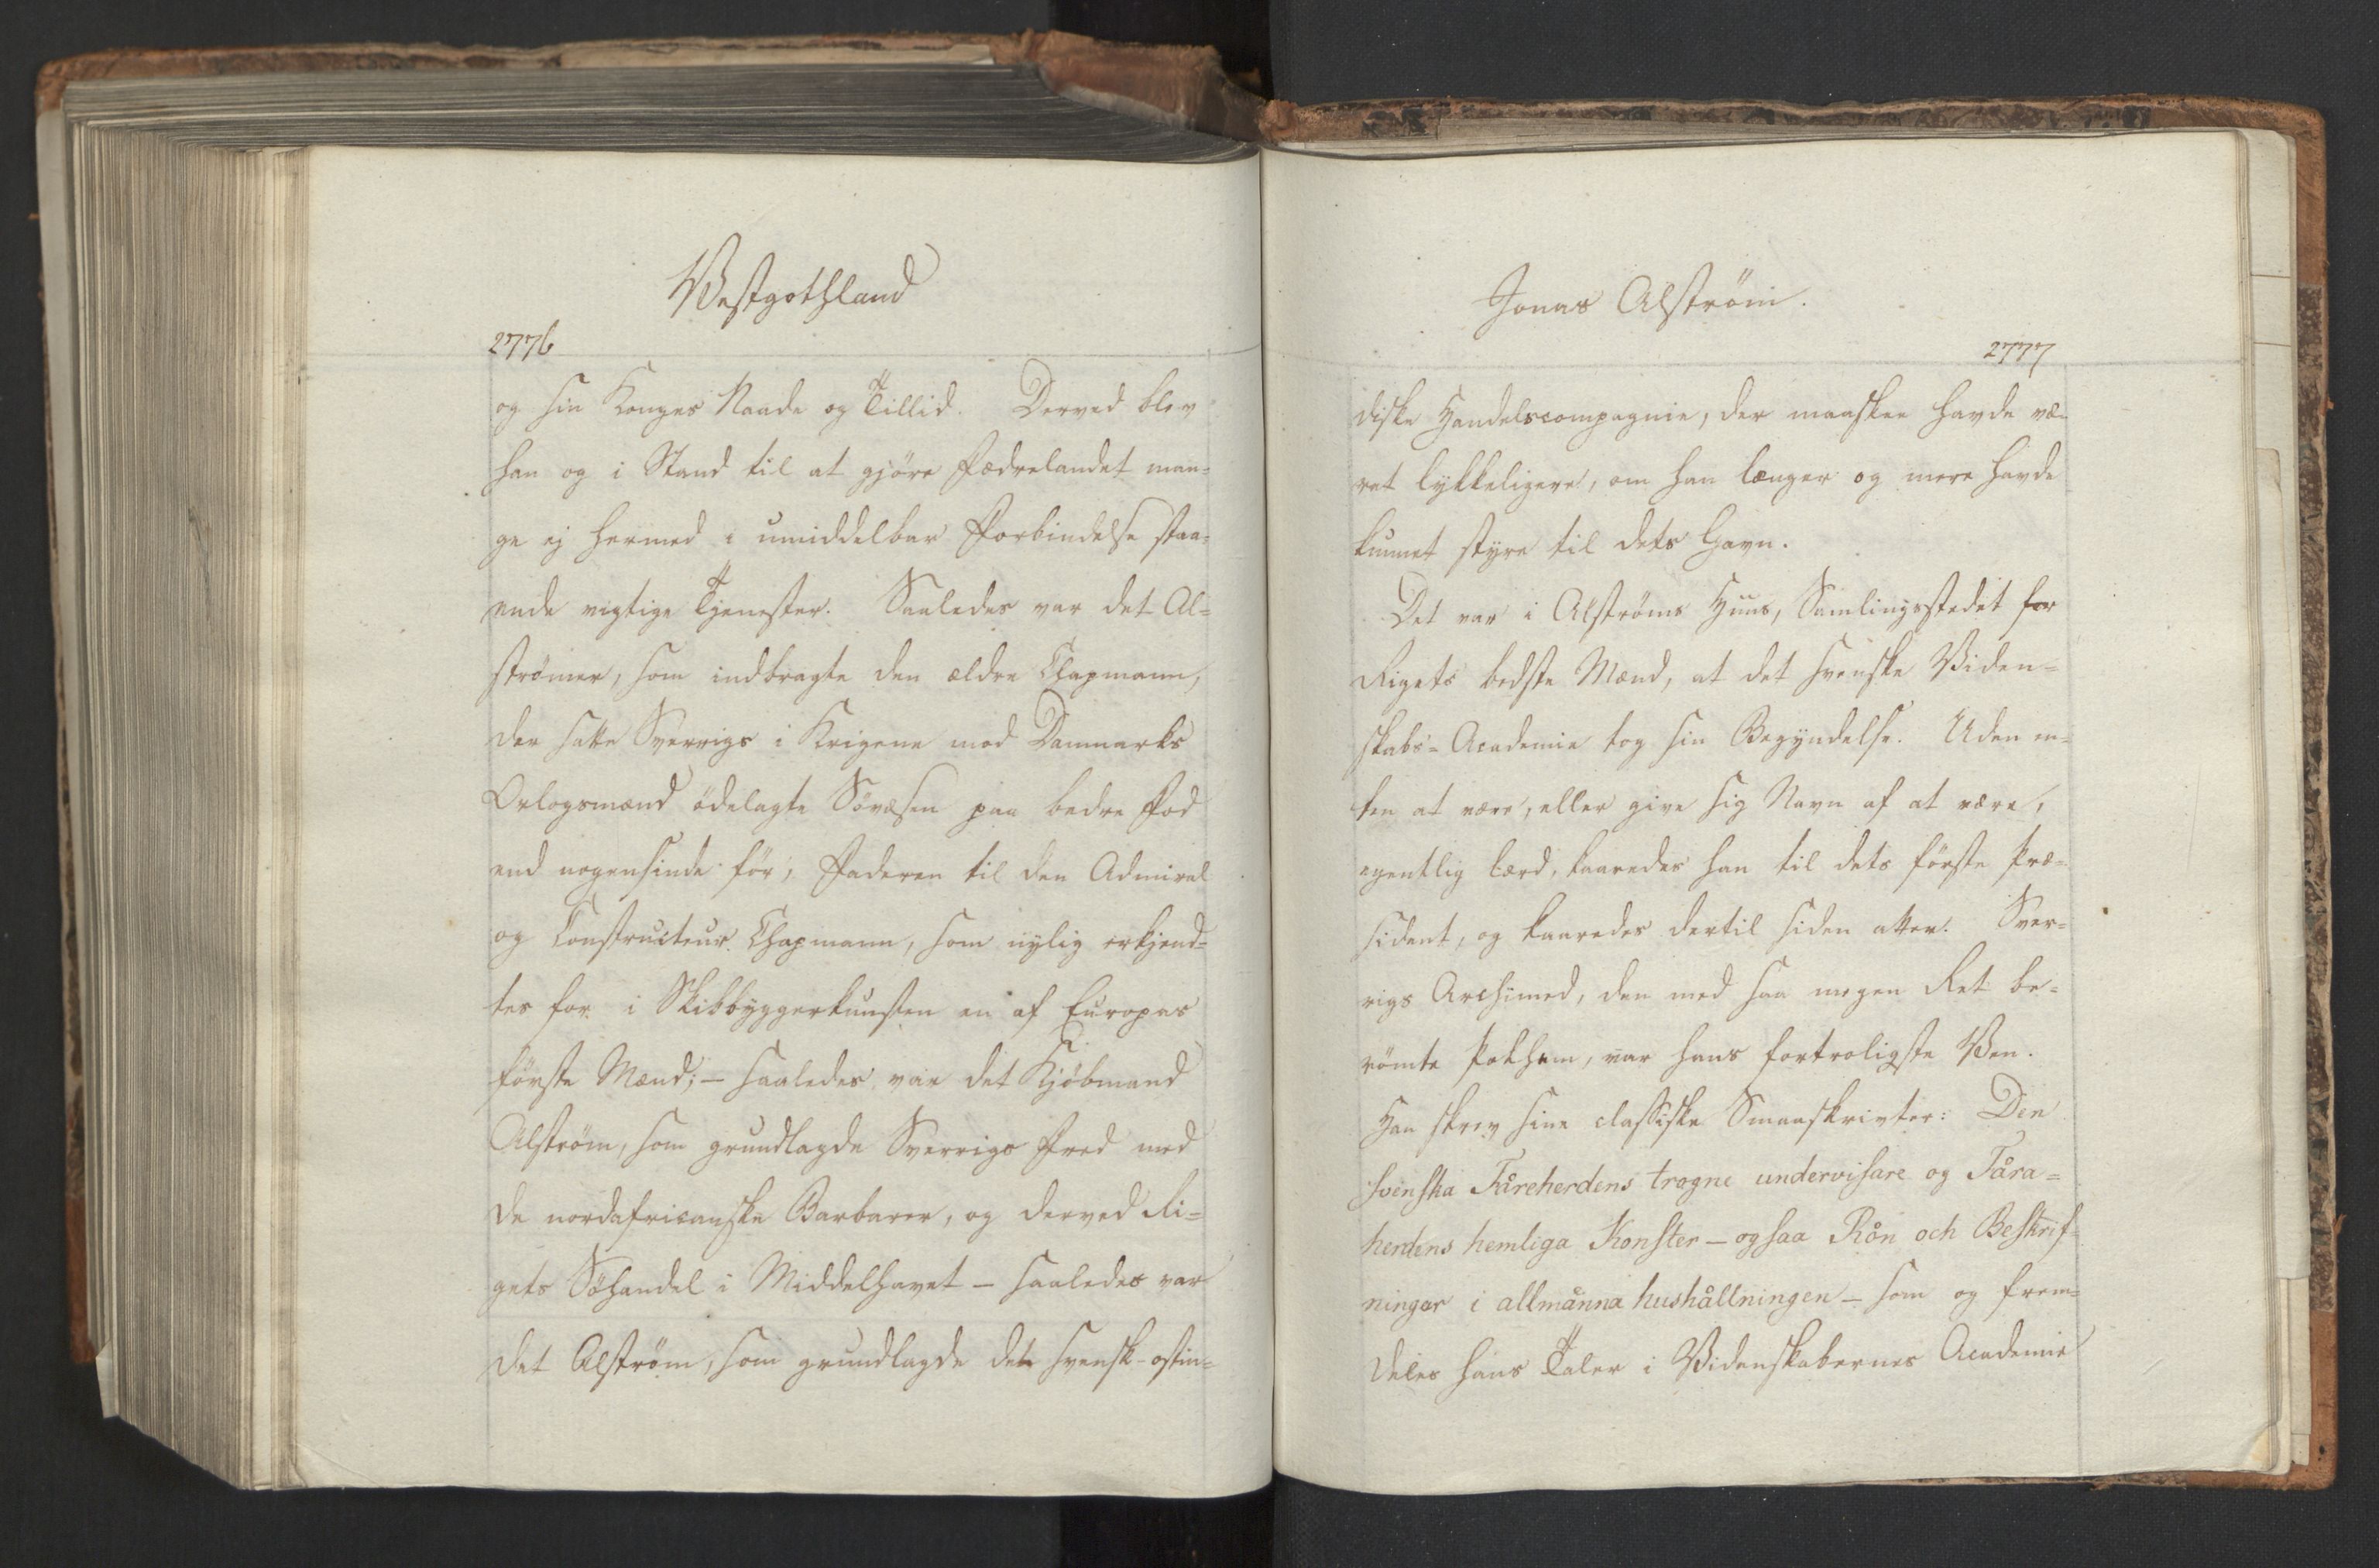 Westgothland
2776
og sin Konges Naade og Tillid. Derved blev
han og i Stand til at gjöre Fædrelandet man-
ge ej hermed i umiddelbar Forbindelse staa-
ende vigtige Tjenester. Saaledes var det Al-
strömer, som indbragte den ældre Chapmann,
der satte Sverrigs i Krigene mod Danmarks
Orlogsmænd ödelagte Sövæsen paa bedre Fod
end nogensinde för, Faderen til den Admiral
og Constructeur Chapmann, som nylig erkjend-
tes for i Skibbyggerkunsten en af Europas
förste Mænd; – saaledes var det Kjöbmand
Alström, som grundlagde Sverrigs Fred med
de nordafricanske Barbarer, og derved Ri-
gets Söhandel i Middelhavet – saaledes var
det Alström, som grundlagde det svensk-ostin-
Jonas Alström.
2777
diske Handelscompagnie, der maaskee havde væ-
ret lykkeligere, om han længer og mere havde
kunnet styre til dets Gavn.
Det var i Alströms Huus, Samlingsstedet for
Rigets bedste Mænd, at det svenske Viden-
skabs-Academie tog sin Begyndelse. Uden en-
ten at være, eller give sig Navn af at være,
egentlig lærd, kaaredes han til dets förste Præ-
sident, og kaaredes dertil siden atter. Sver-
rigs Archimed, den med saa megen Ret be-
römte Polhem, var hans fortroligste Ven.
Han skrev sine classiske Smaaskrivter: Den
svenska Fåreherdens trogne undervisare og Fåra-
herdens hemliga Konster – ogsaa Rön och Beskrif-
ningar i allmänna hushållningen – som og frem-
deles hans Taler i Videnskabernes Academie